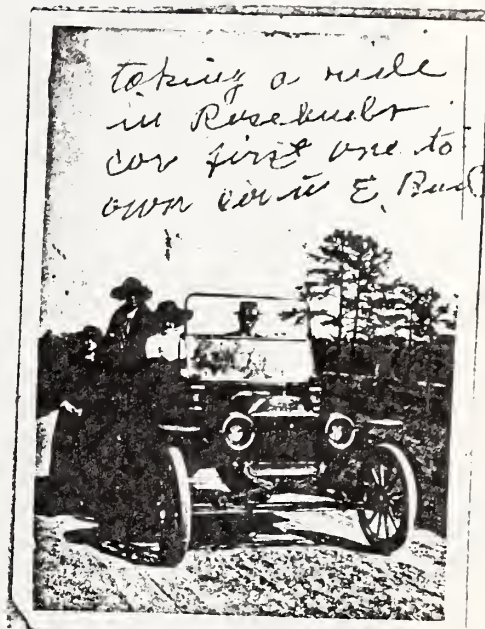 taking a ride
in Rosebushs
car first one to
own car in E. Bud